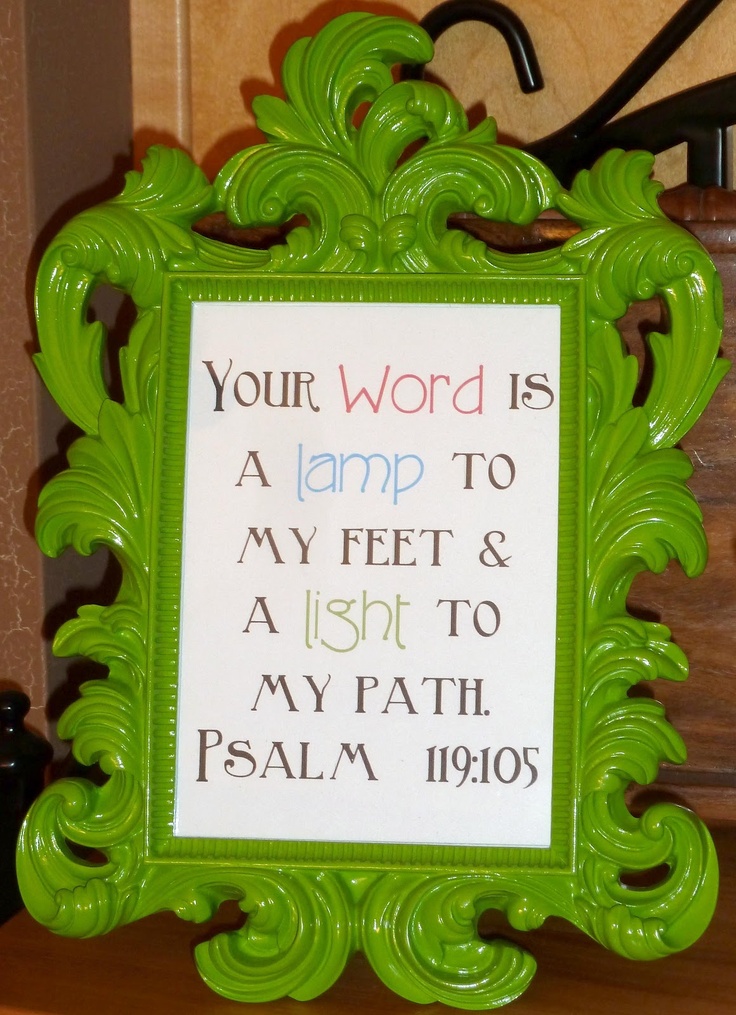 Your Word is
a lamp to
my feet &
a light to
my path.
Psalm 119:105